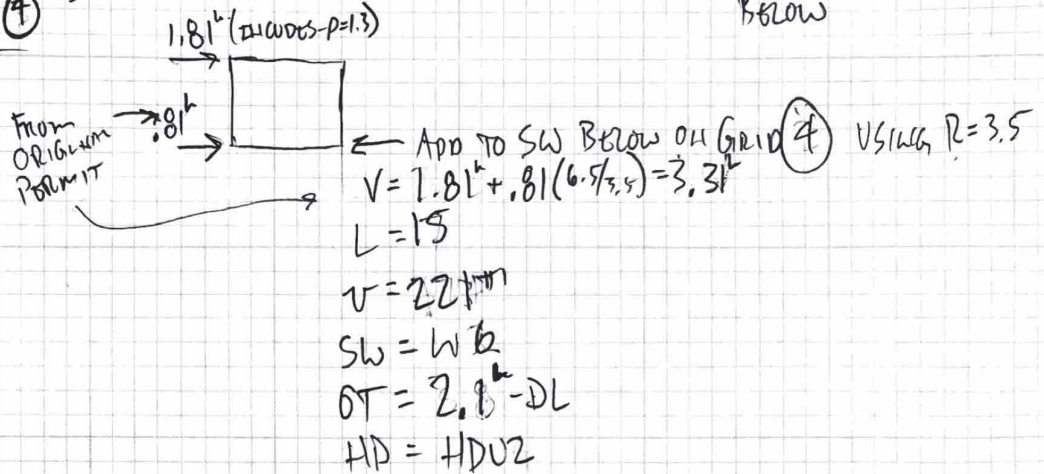 ④
BELOW
1.81ᵏ (INCLUDES-ρ=1.3)
FROM
ORIGINAL
PERMIT
.81ᵏ
ADD TO SW BELOW ON GRID ④ USING R=3.5
V= 1.81ᵏ + .81(6.5/3.5)=3.31ᵏ
L =15
v = 221
SW = W6
OT = 2.1ᵏ-DL
HD = HDU2